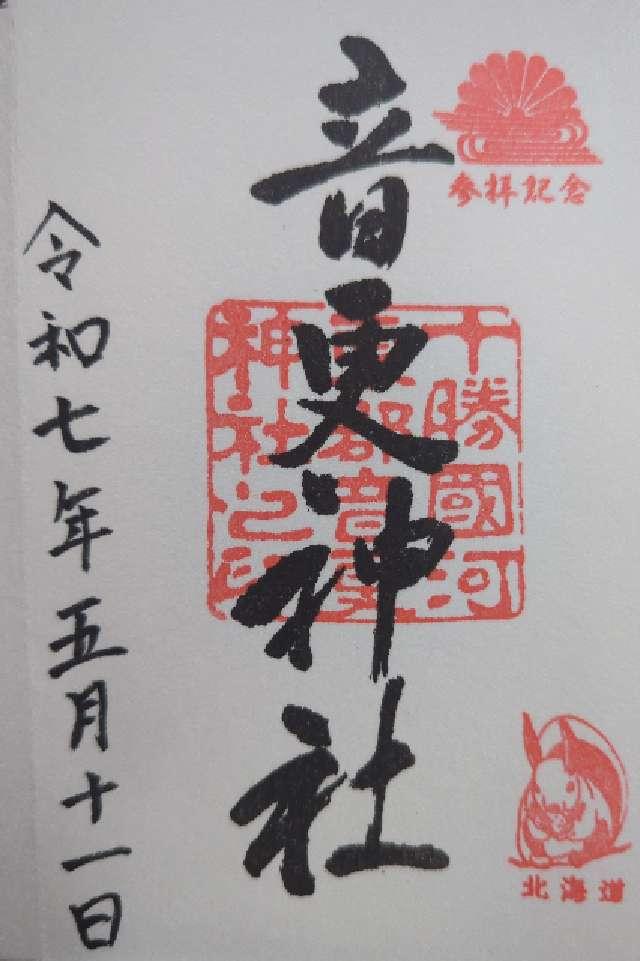 参拝記念
音更神社
十勝國河
東郡音更
神社之印
北海道
令和七年五月十一日